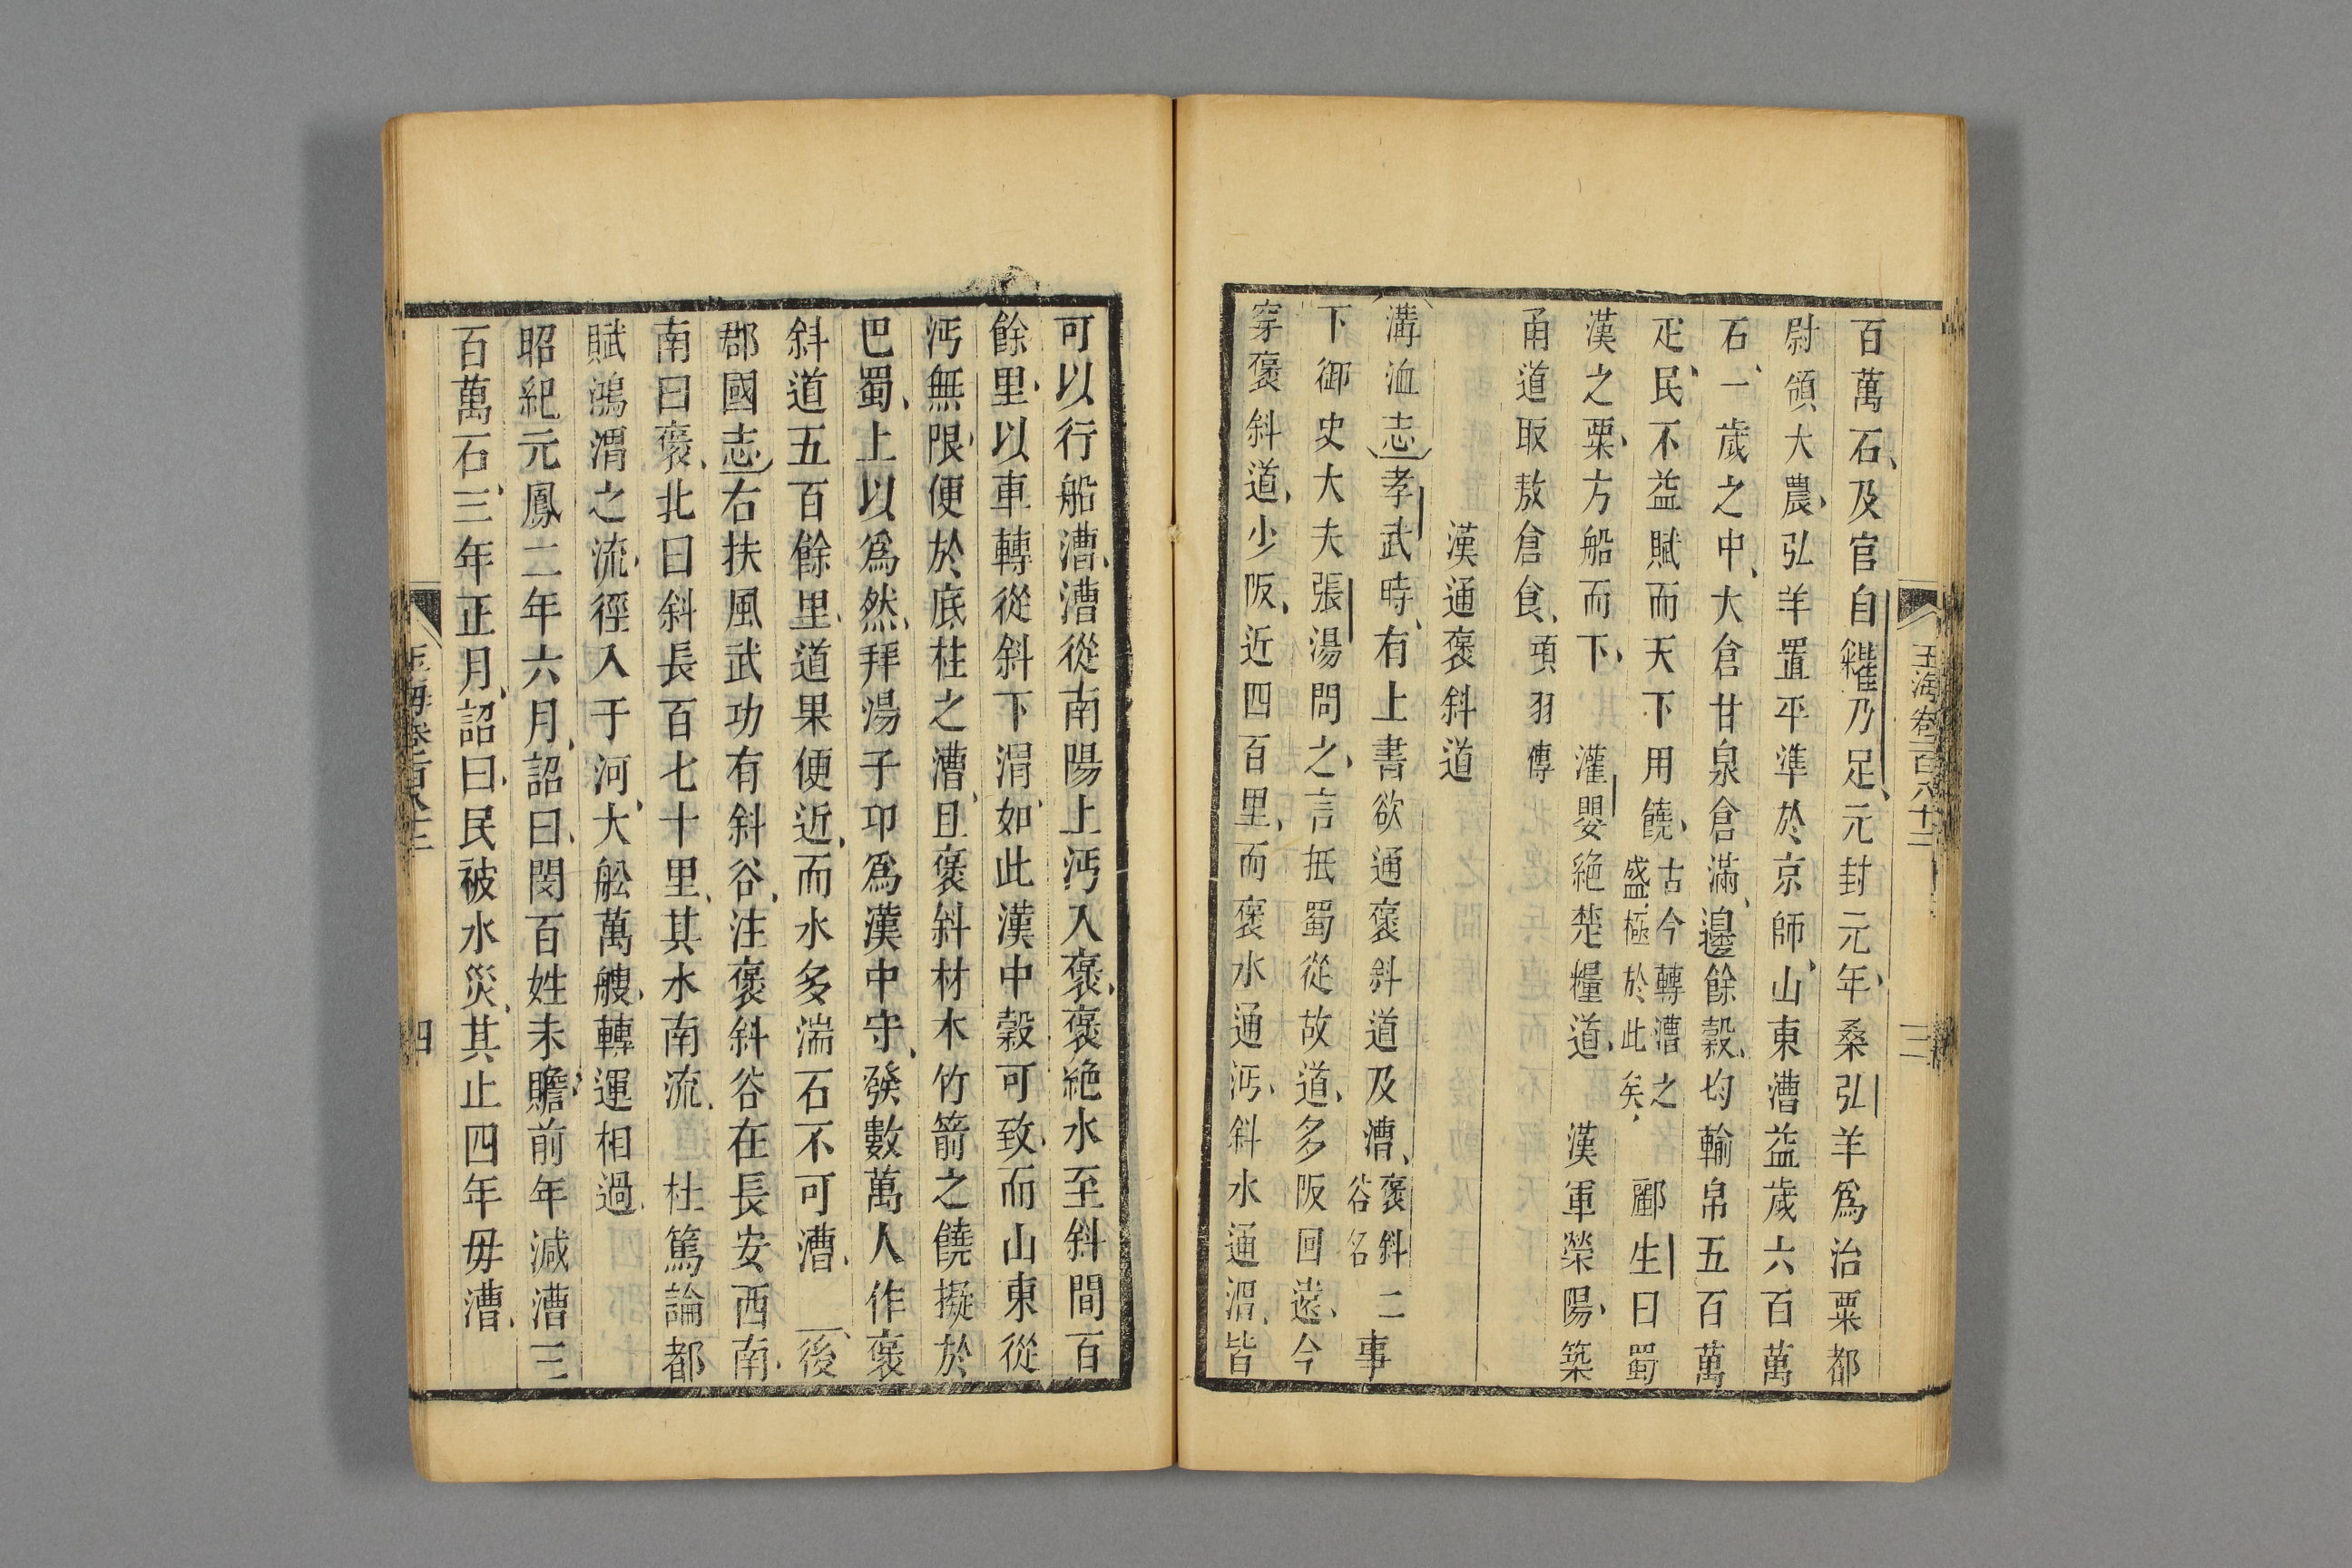 玉海卷一百八十二
三
百萬石及官自糴乃足元封元年桑弘羊爲治粟都
尉領大農弘羊置平準於京師山東漕益歲六百萬
石一歲之中大倉甘泉倉滿邊餘穀均輸帛五百萬
疋民不益賦而天下用饒古今轉漕之盛極於此矣 酈生曰蜀
漢之粟方船而下 灌嬰絶楚糧道 漢軍榮陽築
甬道取敖倉食項羽傳
漢通褒斜道
溝洫志孝武時有上書欲通褒斜道及漕褒斜二谷名事
下御史大夫張湯問之言抵蜀從故道多阪回遠今
穿褒斜道少阪近四百里而褒水通沔斜水通渭皆
可以行船漕漕從南陽上沔入褒褒絶水至斜間百
餘里以車轉從斜下渭如此漢中穀可致而山東從
沔無限便於底柱之漕且褒斜材木竹箭之饒擬於
巴蜀上以爲然拜湯子卬爲漢中守發數萬人作褒
斜道五百餘里道果便近而水多湍石不可漕 後
郡國志右扶風武功有斜谷注褒斜谷在長安西南
南曰褒北曰斜長百七十里其水南流 杜篤論都
賦鴻渭之流徑入于河大舩萬艘轉運相過
昭紀元鳳二年六月詔曰閔百姓未贍前年減漕三
百萬石三年正月詔曰民被水災其止四年毋漕
四